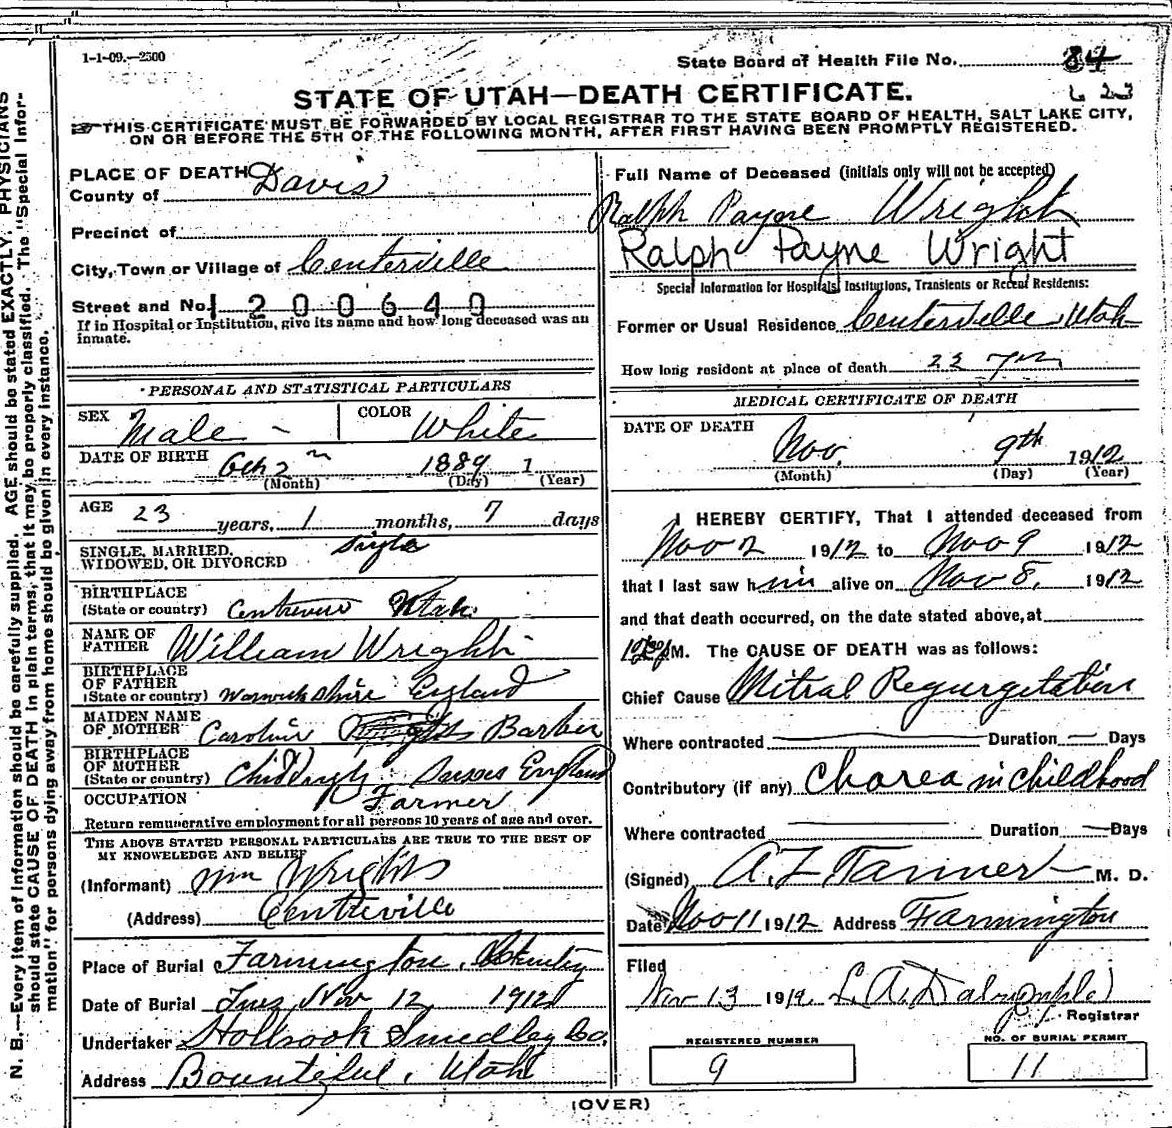 1-1-09.—2500
State Board of Health File No. 84
623
STATE OF UTAH—DEATH CERTIFICATE.
THIS CERTIFICATE MUST BE FORWARDED BY LOCAL REGISTRAR TO THE STATE BOARD OF HEALTH, SALT LAKE CITY,
ON OR BEFORE THE 5TH OF THE FOLLOWING MONTH, AFTER FIRST HAVING BEEN PROMPTLY REGISTERED.
N. B.—Every item of information should be carefully supplied. AGE should be stated EXACTLY. PHYSICIANS
should state CAUSE OF DEATH in plain terms, that it may be properly classified. The "Special Infor-
mation" for persons dying away from home should be given in every instance.
PLACE OF DEATH
County of Davis
Precinct of
City, Town or Village of Centerville
Street and No. 1200640
If in Hospital or Institution, give its name and how long deceased was an
inmate.
PERSONAL AND STATISTICAL PARTICULARS
SEX Male - COLOR White
DATE OF BIRTH Oct 2nd 1889 1
(Month) (Day) (Year)
AGE 23 years, 1 months, 7 days
SINGLE, MARRIED,
WIDOWED, OR DIVORCED Single
BIRTHPLACE
(State or country) Utah
NAME OF
FATHER William Wright
BIRTHPLACE
OF FATHER
(State or country) Warwickshire England
MAIDEN NAME
OF MOTHER Caroline Barber
BIRTHPLACE
OF MOTHER
(State or country) England
OCCUPATION Farmer
Return remunerative employment for all persons 10 years of age and over.
THE ABOVE STATED PERSONAL PARTICULARS ARE TRUE TO THE BEST OF
MY KNOWLEDGE AND BELIEF
(Informant) Wm Wright
(Address) Centreville
Place of Burial Farmington
Date of Burial Tues Nov 12 1912
Undertaker Holbrook Smedley Co.
Address Bountiful, Utah
Full Name of Deceased (initials only will not be accepted)
Ralph Payne Wright
Ralph Payne Wright
Special Information for Hospitals, Institutions, Transients or Recent Residents:
Former or Usual Residence Centerville, Utah
How long resident at place of death 23 yrs
MEDICAL CERTIFICATE OF DEATH
DATE OF DEATH
Nov. 9th 1912
(Month) (Day) (Year)
I HEREBY CERTIFY, That I attended deceased from
Nov 2 1912 to Nov 9 1912
that I last saw him alive on Nov 8, 1912
and that death occurred, on the date stated above, at
M. The CAUSE OF DEATH was as follows:
Chief Cause Mitral Regurgitation
Where contracted Duration — Days
Contributory (if any) Chorea in childhood
Where contracted Duration — Days
(Signed) A. Z. Tanner M. D.
Date Nov 11 1912 Address Farmington
Filed
Nov 13 191 L. A. Dalrymple
Registrar
REGISTERED NUMBER
9
NO. OF BURIAL PERMIT
11
(OVER)